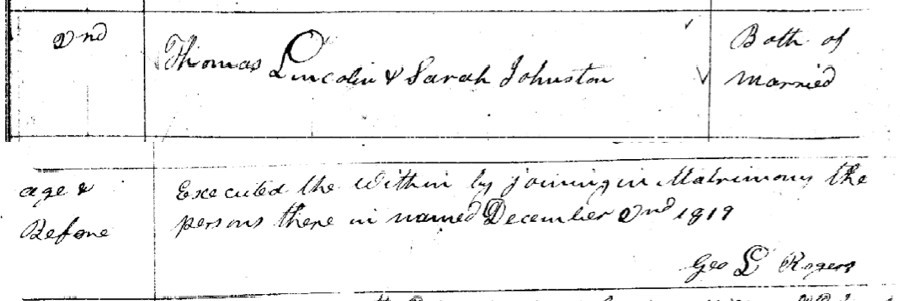 2nd
Thomas Lincolin & Sarah Johnston
Both of
married
age &
Before
Executed the within by joining in Matrimony the
persons there in named December 2nd 1819
Geo L Rogers